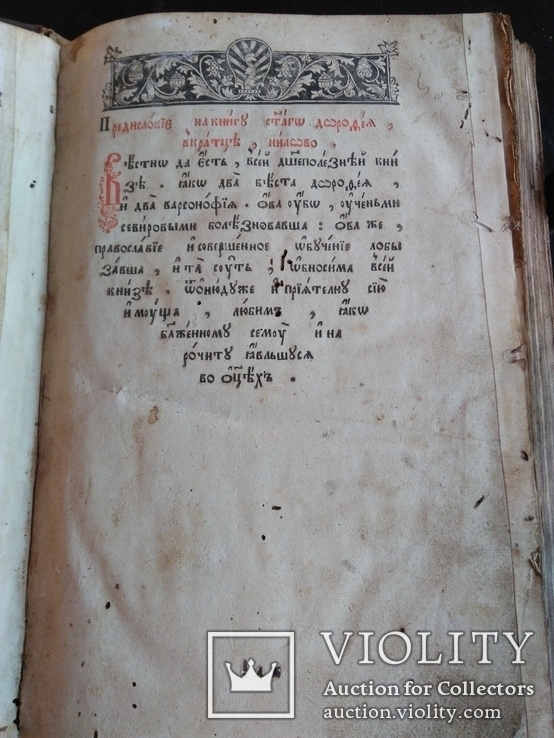 Предисло́вїе на кни́гу ст҃а́гѡ дѡроѳе́а ,
вкра́тцѣ , ни́лово .
Вѣ́стно да є҆́сть , все́й дш҃еполе́знѣй кни́
зѣ . ꙗ҆́кѡ два̀ бѣ́ста дорѡѳе́а ,
и҆ два̀ варсоно́фїа . ѻ҆́ва ѹ҆́бѡ , ѹ҆че́ньми
севи́ровыми болѣ́зновавша : ѻ҆́ва же ,
правосла́вїе и҆ соверше́нное ѡ҆буче́нїе лобы
за́вша , и҆ та̀ сѹ́ть , ѡ҆бноси́ма все́й
кни́зѣ . ѿѻню́дуже и҆ прїѧ́телну сїю̀
и҆мѹ́ща , лю́бимъ , ꙗ҆́кѡ
блаже́нному семѹ̀ и҆ на
ро́читу ꙗ҆́вльшуся
во ѻ҆ц҃ѣ́хъ .
VIOLITY
Auction for Collectors
auction.violity.com